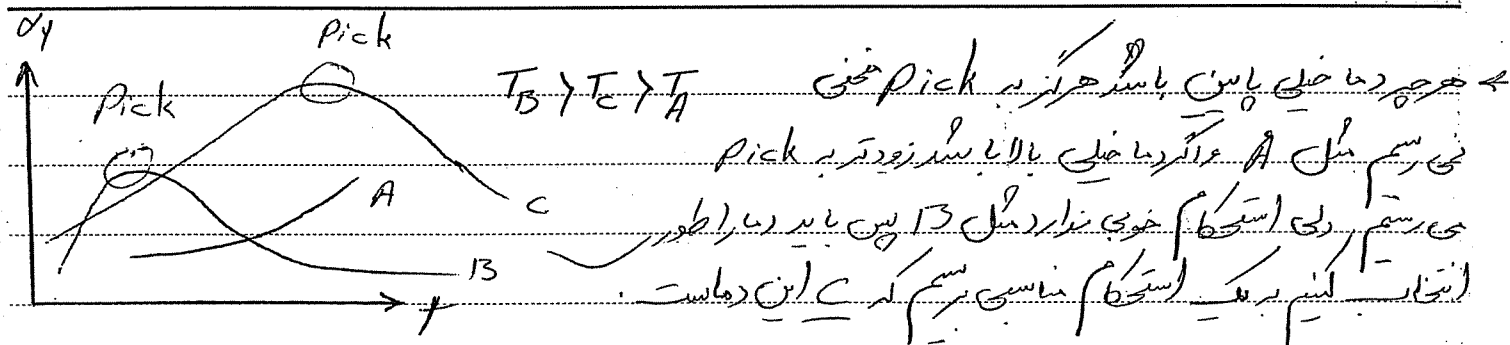 σy
Pick
Pick
A
B
C
t
T_B > T_C > T_A
← هرچه دما خیلی پایین باشد هرگز به pick منحنی
نمی رسیم مثل A و اگر دما خیلی بالا باشد زودتر به pick
می رسیم ولی استحکام خوبی ندارد مثل B پس باید دما را طوری
انتخاب کنیم به یک استحکام مناسبی برسیم که C این دماست.